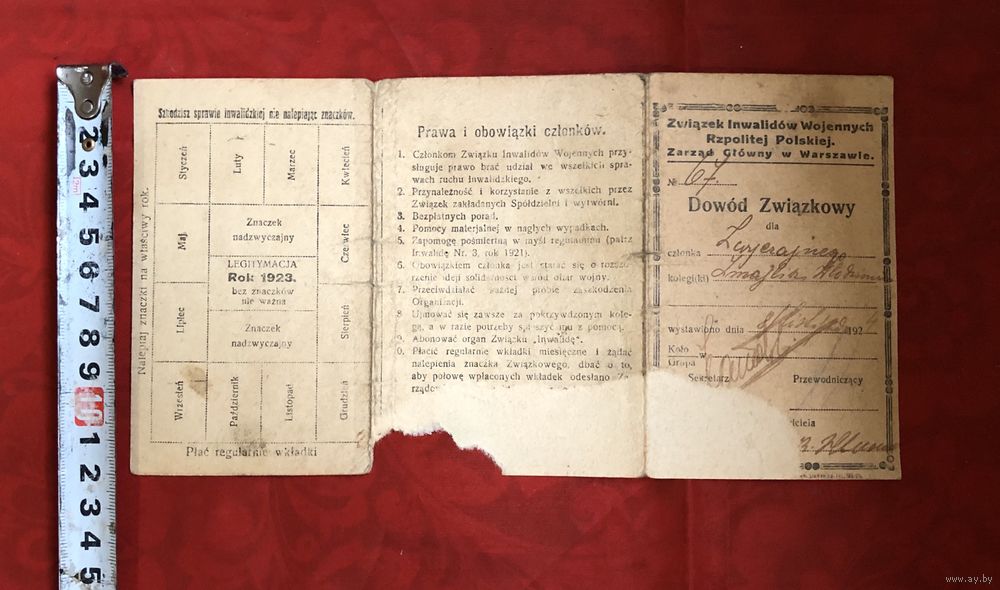 Szkodzisz sprawie inwalidzkiej nie nalepiając znaczków.
Nalepiaj znaczki na właściwy rok.
Styczeń
Luty
Marzec
Kwiecień
Maj
Znaczek
nadzwyczajny
Czerwiec
LEGITYMACJA
Rok 1923.
bez znaczków
nie ważna
Lipiec
Znaczek
nadzwyczajny
Sierpień
Wrzesień
Październik
Listopad
Grudzień
Płać regularnie wkładki
Prawa i obowiązki członków.
1. Członkom Związku Inwalidów Wojennych przy-
sługuje prawo brać udział we wszelkich spra-
wach ruchu Inwalidzkiego.
2. Przynależność i korzystanie z wszelkich przez
Związek zakładanych Spółdzielni i wytwórni.
3. Bezpłatnych porad.
4. Pomocy materjalnej w nagłych wypadkach.
5. Zapomogę pośmiertną w myśl regulaminu (patrz
Inwalidę Nr. 3, rok 1921).
6. Obowiązkiem członka jest starać się o rozsze-
rzenie idei solidarności wśród ofiar wojny.
7. Przeciwdziałać każdej próbie zaszkodzenia
Organizacji.
8. Ujmować się zawsze za pokrzywdzonym kole-
gą, a w razie potrzeby spieszyć mu z pomocą.
9. Abonować organ Związku „Inwalidę".
0. Płacić regularnie wkładki miesięczne i żądać
nalepienia znaczka Związkowego, dbać o to,
aby połowę wpłaconych wkładek odesłano Za-
Związek Inwalidów Wojennych
Rzpolitej Polskiej.
Zarząd Główny w Warszawie.
№ 67
Dowód Związkowy
dla
członka Zwyczajnego
kolegi(ki)
wystawiono dnia 192
Koło w
Grupa
Sekretarz Przewodniczący
iciela
2 3 4 5 6 7 8 9 10 1 2 3 4 5
www.ay.by